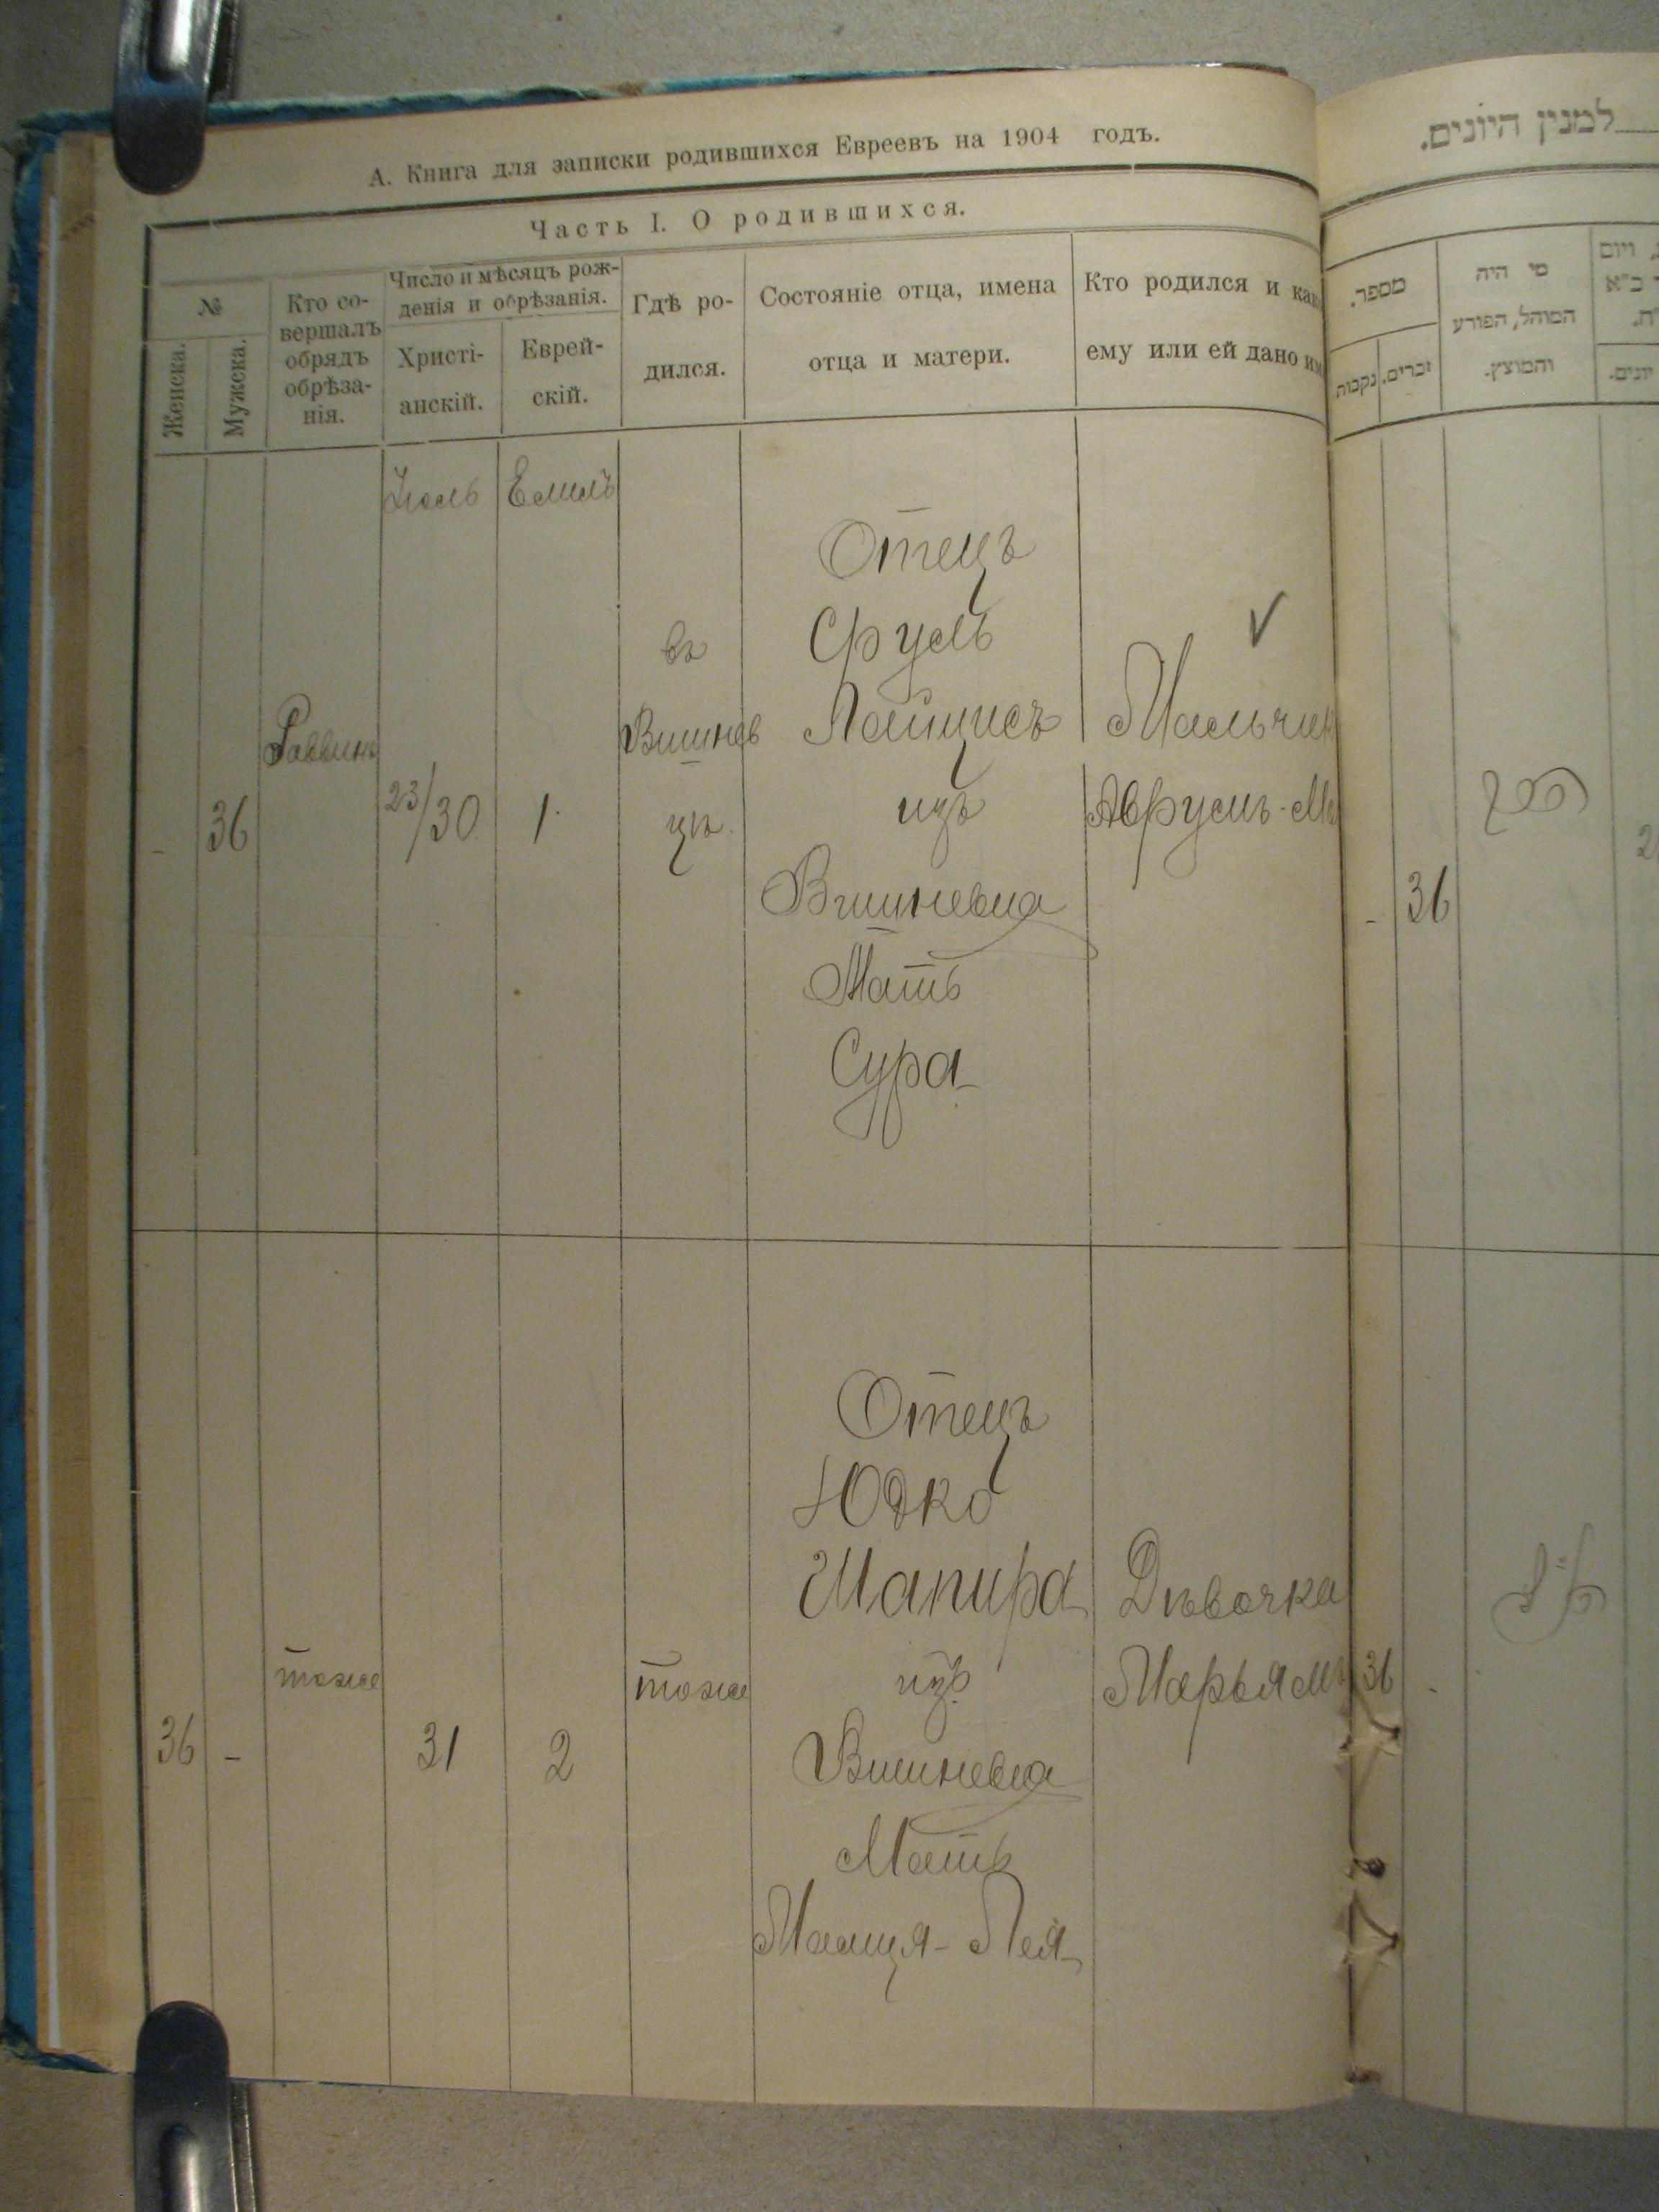 А. Книга для записки родившихся Евреевъ на 1904 годъ.
Часть I. О родившихся.
№
Женска.
Мужска.
Кто со-
вершалъ
обрядъ
обрѣза-
нія.
Число и мѣсяцъ рож-
денія и обрѣзанія.
Христі-
анскій.
Еврей-
скій.
Гдѣ ро-
дился.
Состояніе отца, имена
отца и матери.
Кто родился и как
ему или ей дано им
36
Раввинъ
23/30
1
въ
Вишнев
цѣ
Отецъ
Сруль
изъ
Вишневца
Мать
Сура
Мальчик
Аврумъ-М
36
-
тоже
31
2
тоже
Отецъ
Юдко
Шапира
изъ
Вишневца
Мать
Дѣвочка
Марьямъ
למנין היונים.
מספר.
נקבות
זכרים.
מי היה
המוהל, הפורע
והמוצץ.
36
36